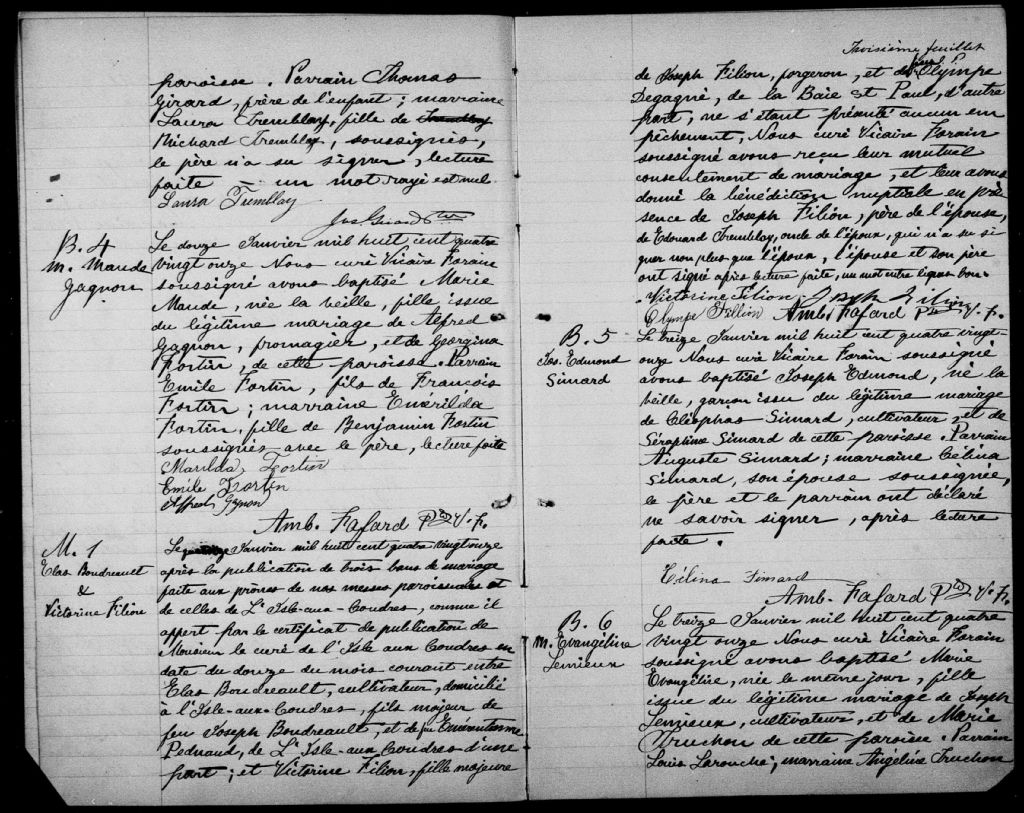 paroisse. Parrain Thomas
Girard, frère de l'enfant; marraine
Laura Tremblay, fille de Tremblay
Richard Tremblay, soussignés,
le père n'a su signer, lecture
faite un mot rayé est nul
Laura Tremblay
Jos Girard
B. 4
M. Maude
Gagnon
Le douze Janvier mil huit cent quatre
vingt onze Nous curé Vicaire Forain
soussigné avons baptisé Marie
Maude, née la veille, fille issue
du légitime mariage de Alfred
Gagnon, fromagier, et de Georgina
Fortin, de cette paroisse. Parrain
Emile Fortin, fils de François
Fortin; marraine Emérilda
Fortin, fille de Benjamin Fortin
soussignés avec le père, lecture faite
Marilda Fortin
Emile Fortin
Alfred Gagnon
Amb. Fafard Ptre V. F.
M. 1
Elas Boudreault
&
Victorine Filion
Le Janvier mil huit cent quatre vingt onze
après la publication de trois bans de mariage
faite aux prônes de nos messes paroissiales et
de celles de L'Isle-aux-Coudres, comme il
appert par le certificat de publication de
Monsieur le curé de l'Isle aux Coudres en
date du douze du mois courant entre
Elas Boudreault, cultivateur, domicilié
à l'Isle-aux-Coudres, fils majeur de
feu Joseph Boudreault, et de feu
Pednaud, de L'Isle-aux Coudres d'une
part; et Victorine Filion, fille majeure
Troisième feuillet
de Joseph Filion, forgeron, et de feue Olympe
Degagné, de la Baie St Paul, d'autre
part, ne s'étant présenté aucun em
pêchement, Nous curé Vicaire Forain
soussigné avons reçu leur mutuel
consentement de mariage, et leur avons
donné la bénédiction nuptiale en pré
sence de Joseph Filion, père de l'épouse,
de Edouard Tremblay, oncle de l'époux, qui n'a su si
gner non plus que l'époux, l'épouse et son père
ont signé après lecture faite, un mot entre lignes bon.
Victorine Filion Joseph Filion
Olympe Fillion Amb. Fafard Ptre V. F.
B. 5
Jos. Edmond
Simard
Le treize Janvier mil huit cent quatre vingt
onze Nous curé Vicaire Forain soussigné
avons baptisé Joseph Edmond, né la
veille, garçon issu du légitime mariage
de Cléophas Simard, cultivateur, et de
Séraphine Simard de cette paroisse. Parrain
Auguste Simard; marraine Célina
Simard, son épouse soussignée,
le père et le parrain ont déclaré
ne savoir signer, après lecture
faite.
Célina Simard
Amb. Fafard Ptre V. F.
B. 6
M. Evangéline
Lemieux
Le treize Janvier mil huit cent quatre
vingt onze Nous curé Vicaire Forain
soussigné avons baptisé Marie
Evangéline, née le même jour, fille
issue du légitime mariage de Joseph
Lemieux, cultivateur, et de Marie
Truchon de cette paroisse. Parrain
Louis Larouche; marraine Angéline Truchon